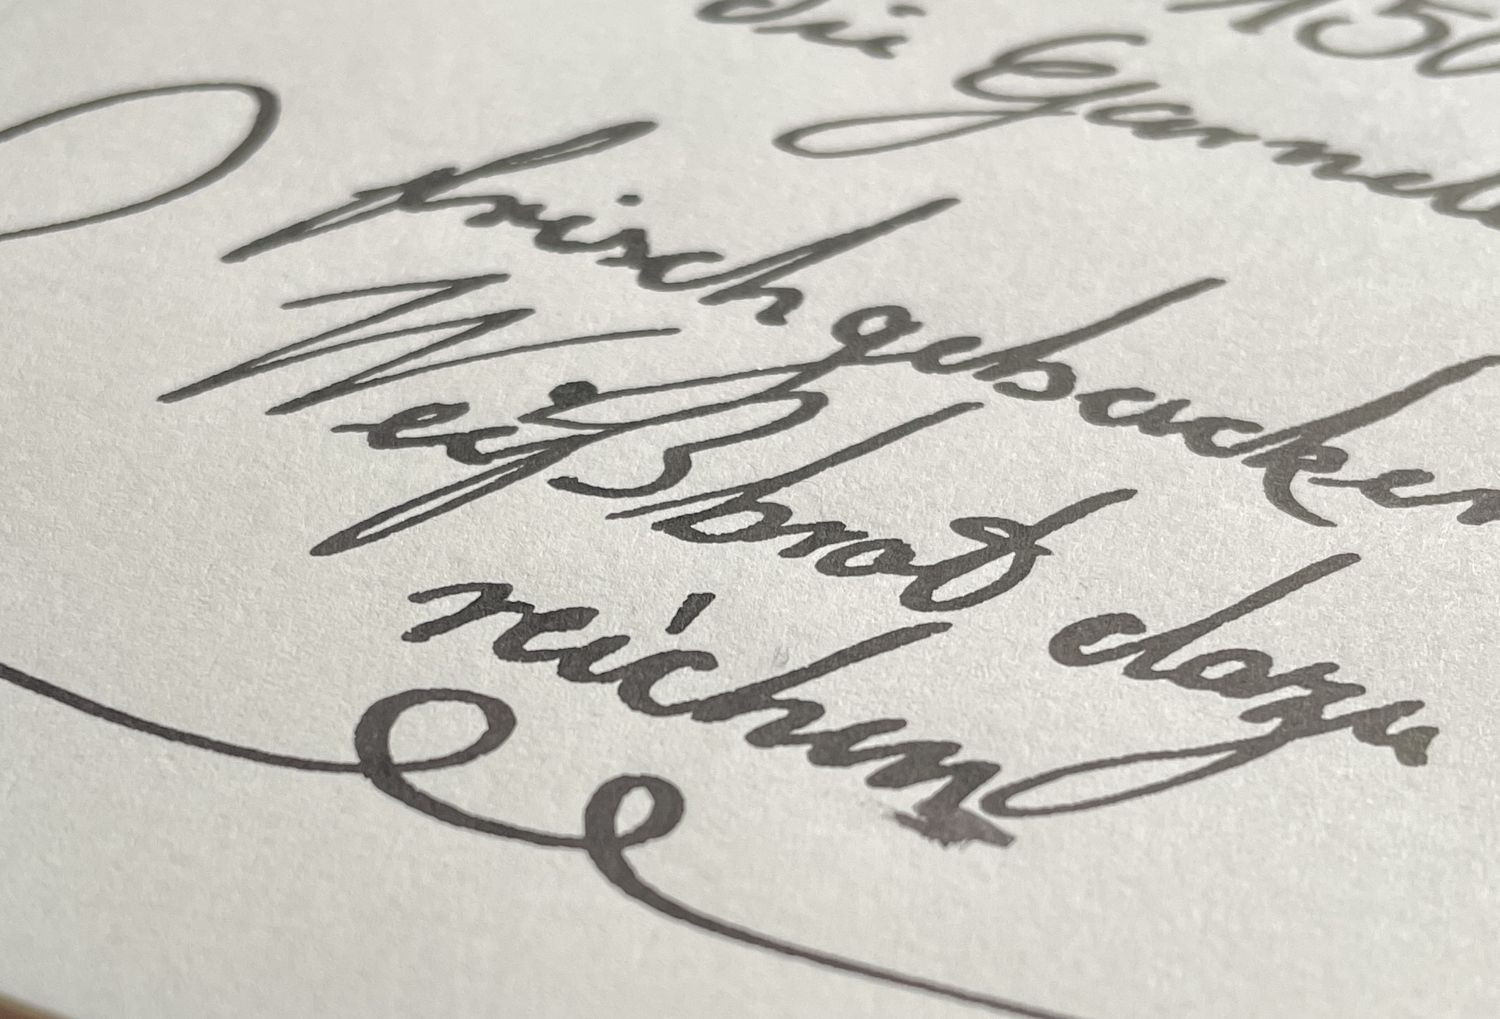 150
die Garnele
frisch gebacken
Weißbrot dazu
reichen